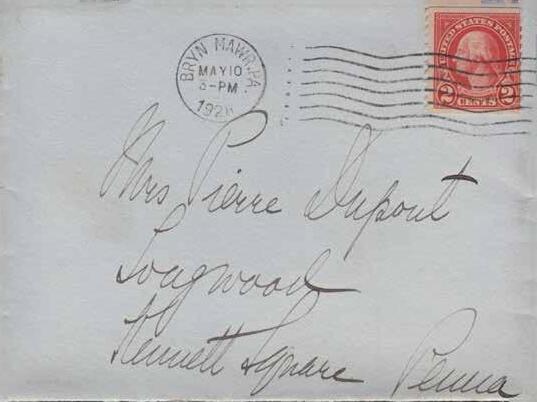 BRYN MAWR, PA.
MAY 10
3-PM
UNITED STATES POSTAGE
2 CENTS 2
Mrs Pierre Dupont
Longwood
Kennett Square Penna